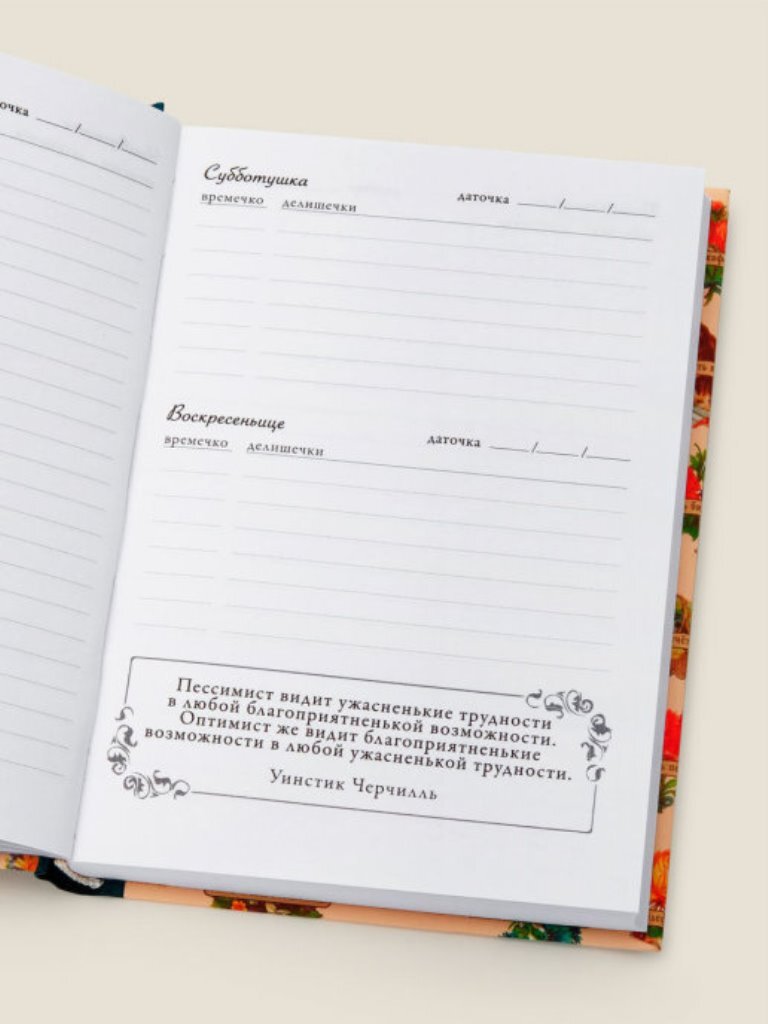 очка __/__/__
Субботушка
времечко делишечки даточка __/__/__
Воскресеньице
времечко делишечки даточка __/__/__
Пессимист видит ужасненькие трудности
в любой благоприятненькой возможности.
Оптимист же видит благоприятненькие
возможности в любой ужасненькой трудности.
Уинстик Черчилль